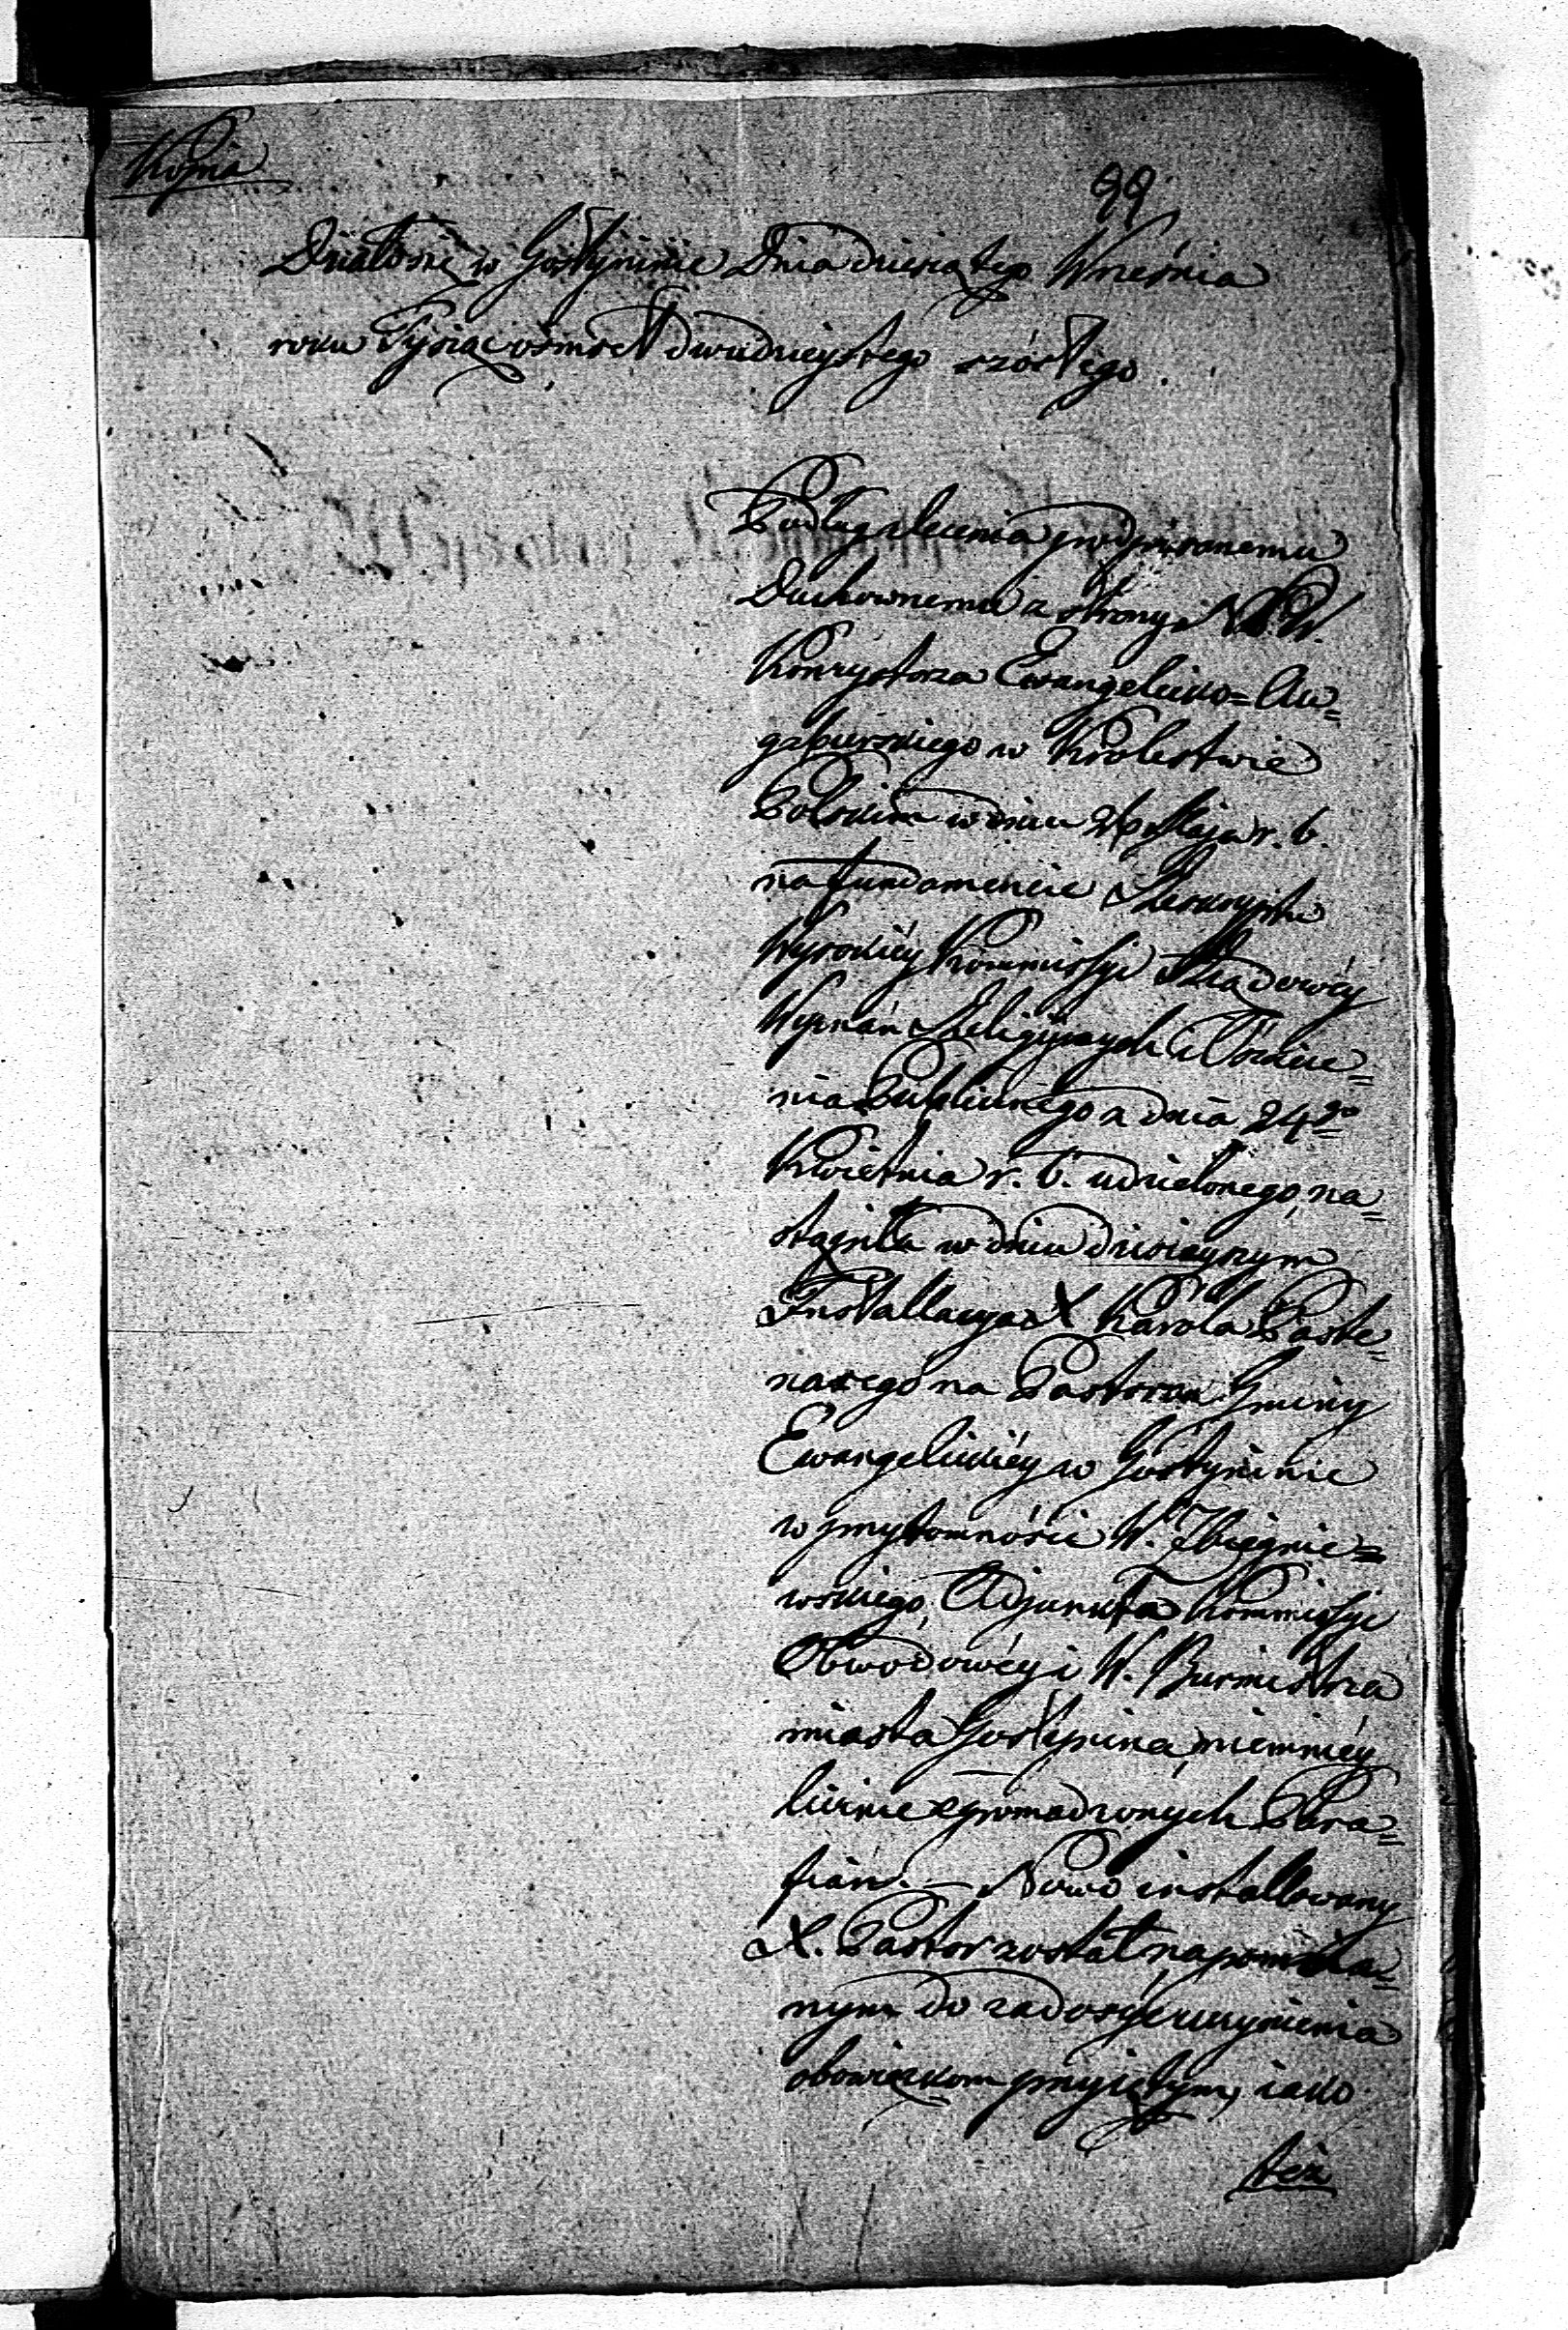 Kopia
99
Działo się w Gostyninie Dnia dziesiątego Września
roku Tysiąc ośmset dwudziestego szóstego.
Podług zlecenia podpisanemu
Duchownemu z strony
Konsystorza Ewangelicko=Au=
gzburskiego w Królestwie
Polskim w dniu 26 Maja r. b.
na fundamencie Reskryptu
Wysokiéy Kommissyi Rządowéy
Wyznań Religijnych i Oświece=
nia Publicznego z dnia 24go
Kwietnia r. b. udzielonego, na=
stąpiła w dniu dzisieyszym
Installacya X Karola Paste=
naciego na Pastora Gminy
Ewangelickiéy w Gostyninie
w przytomności W. Zbiegnie=
wskiego, Adjunkta Kommissyi
Obwodowéy i W. Burmistrza
miasta Gostynina, niemniéy
licznie zgromadzonych Para=
fian. – Nowo installowany
X. Pastor został napomnia=
nym do zadosyć uczynienia
obowiązkom przyjętym, iako
też